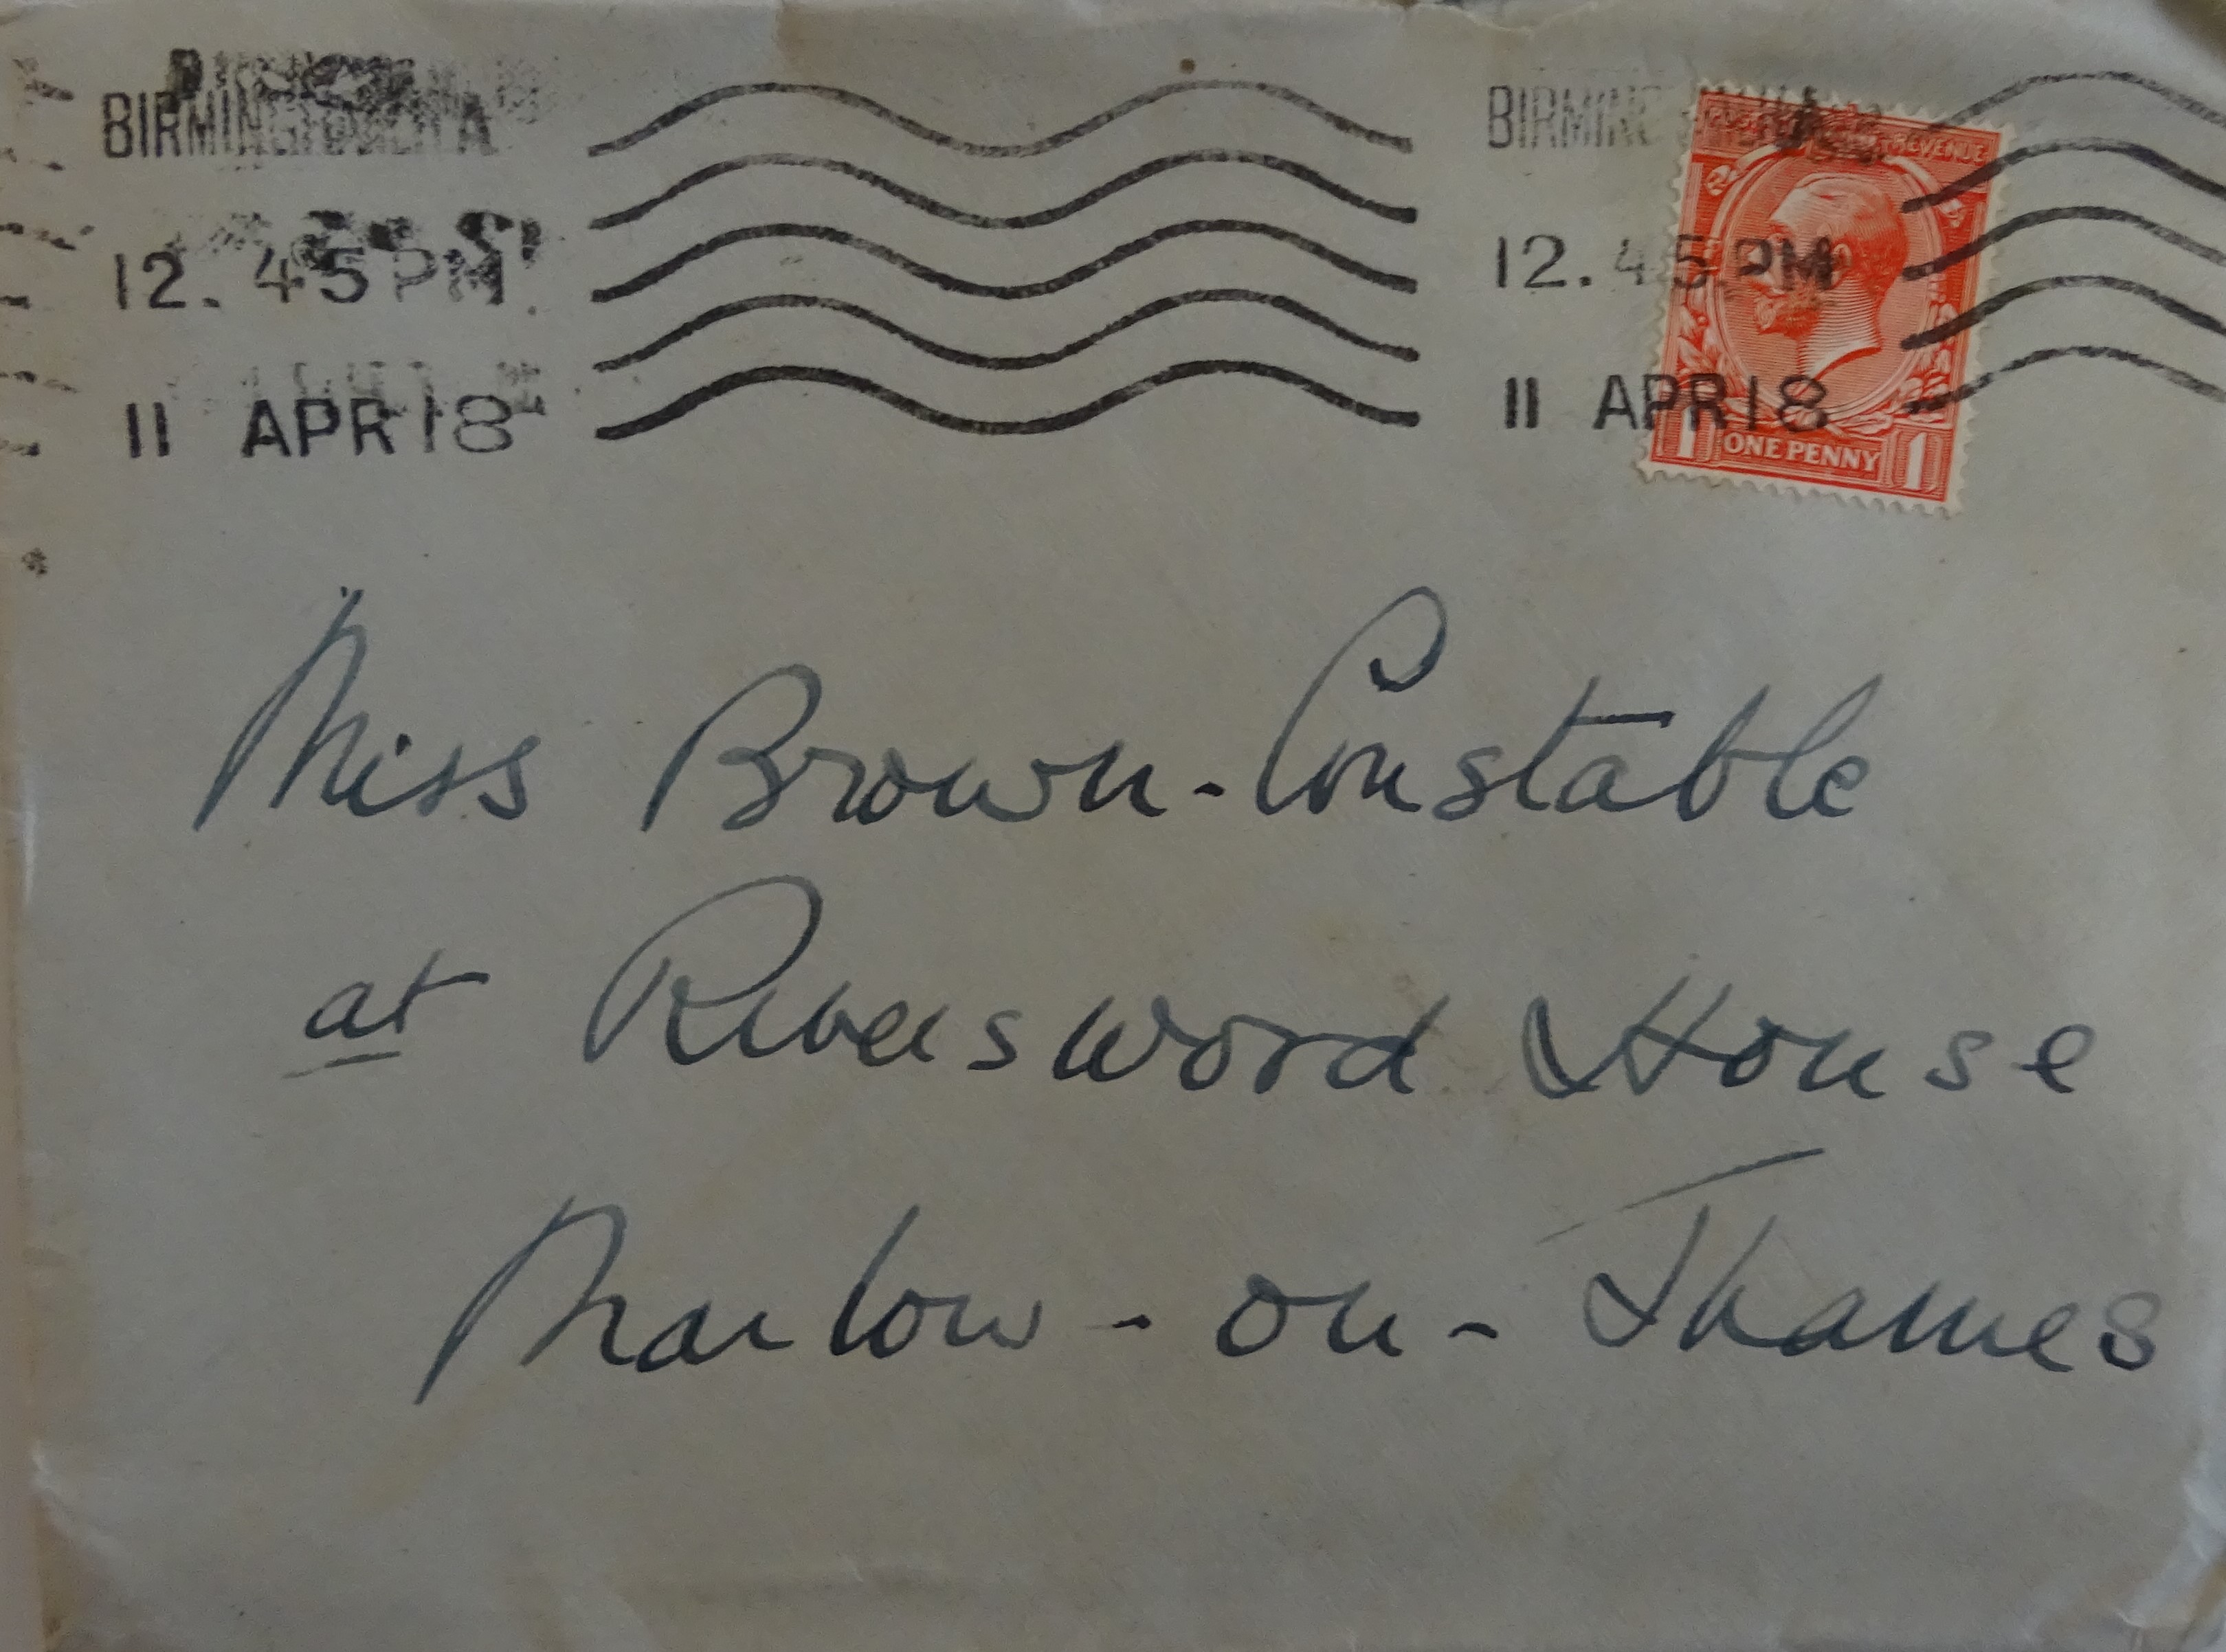 BIRMING
12.45PM
11 APR 18
BIRMING
12.45PM
11 APR 18
REVENUE
1 ONE PENNY 1
Miss Brown-Constable
at Riversword House
Marlow-on-Thames